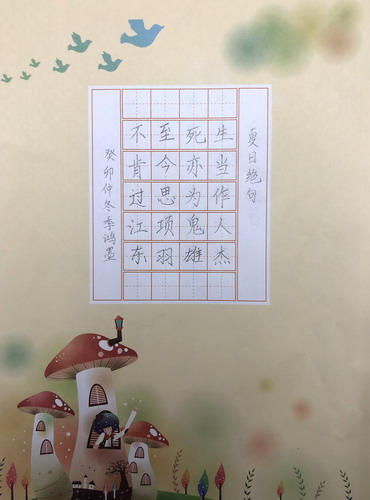 夏日绝句
生当作人杰
死亦为鬼雄
至今思项羽
不肯过江东
癸卯仲冬季鸿墨